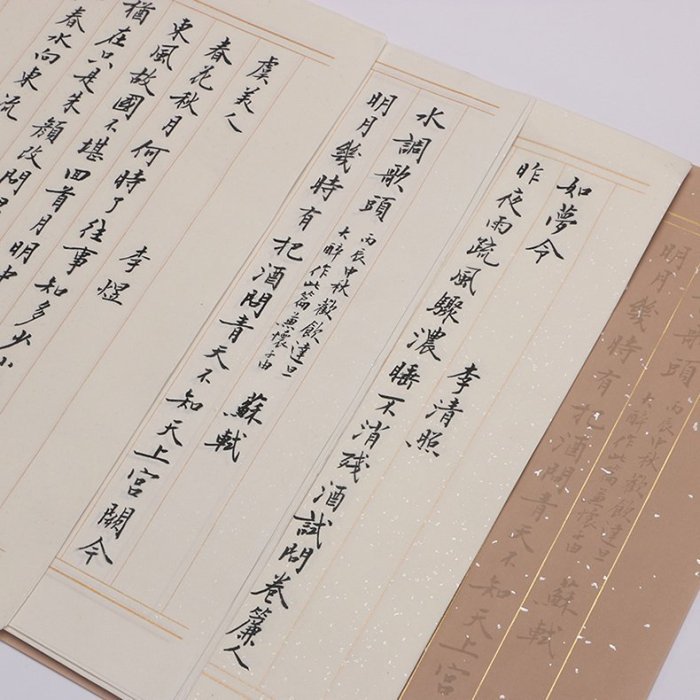 頭 丙辰中秋歡飲達旦
大醉作此篇兼懷子由 蘇軾
明月幾時有把酒問青天不知天上宮
如夢令 李清照
昨夜雨疏風驟濃睡不消殘酒試問卷簾人
水調歌頭 丙辰中秋歡飲達旦
大醉作此篇兼懷子由 蘇軾
明月幾時有把酒問青天不知天上宮闕今
虞美人 李煜
春花秋月何時了往事知多少小
東風故國不堪回首月明中
猶在只是朱顏改問
春水向東流